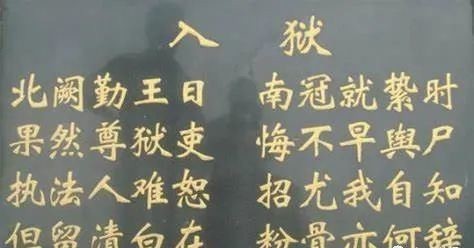 入狱
北阙勤王日 南冠就絷时
果然尊狱吏 悔不早舆尸
执法人难恕 招尤我自知
但留清白在 粉骨亦何辞